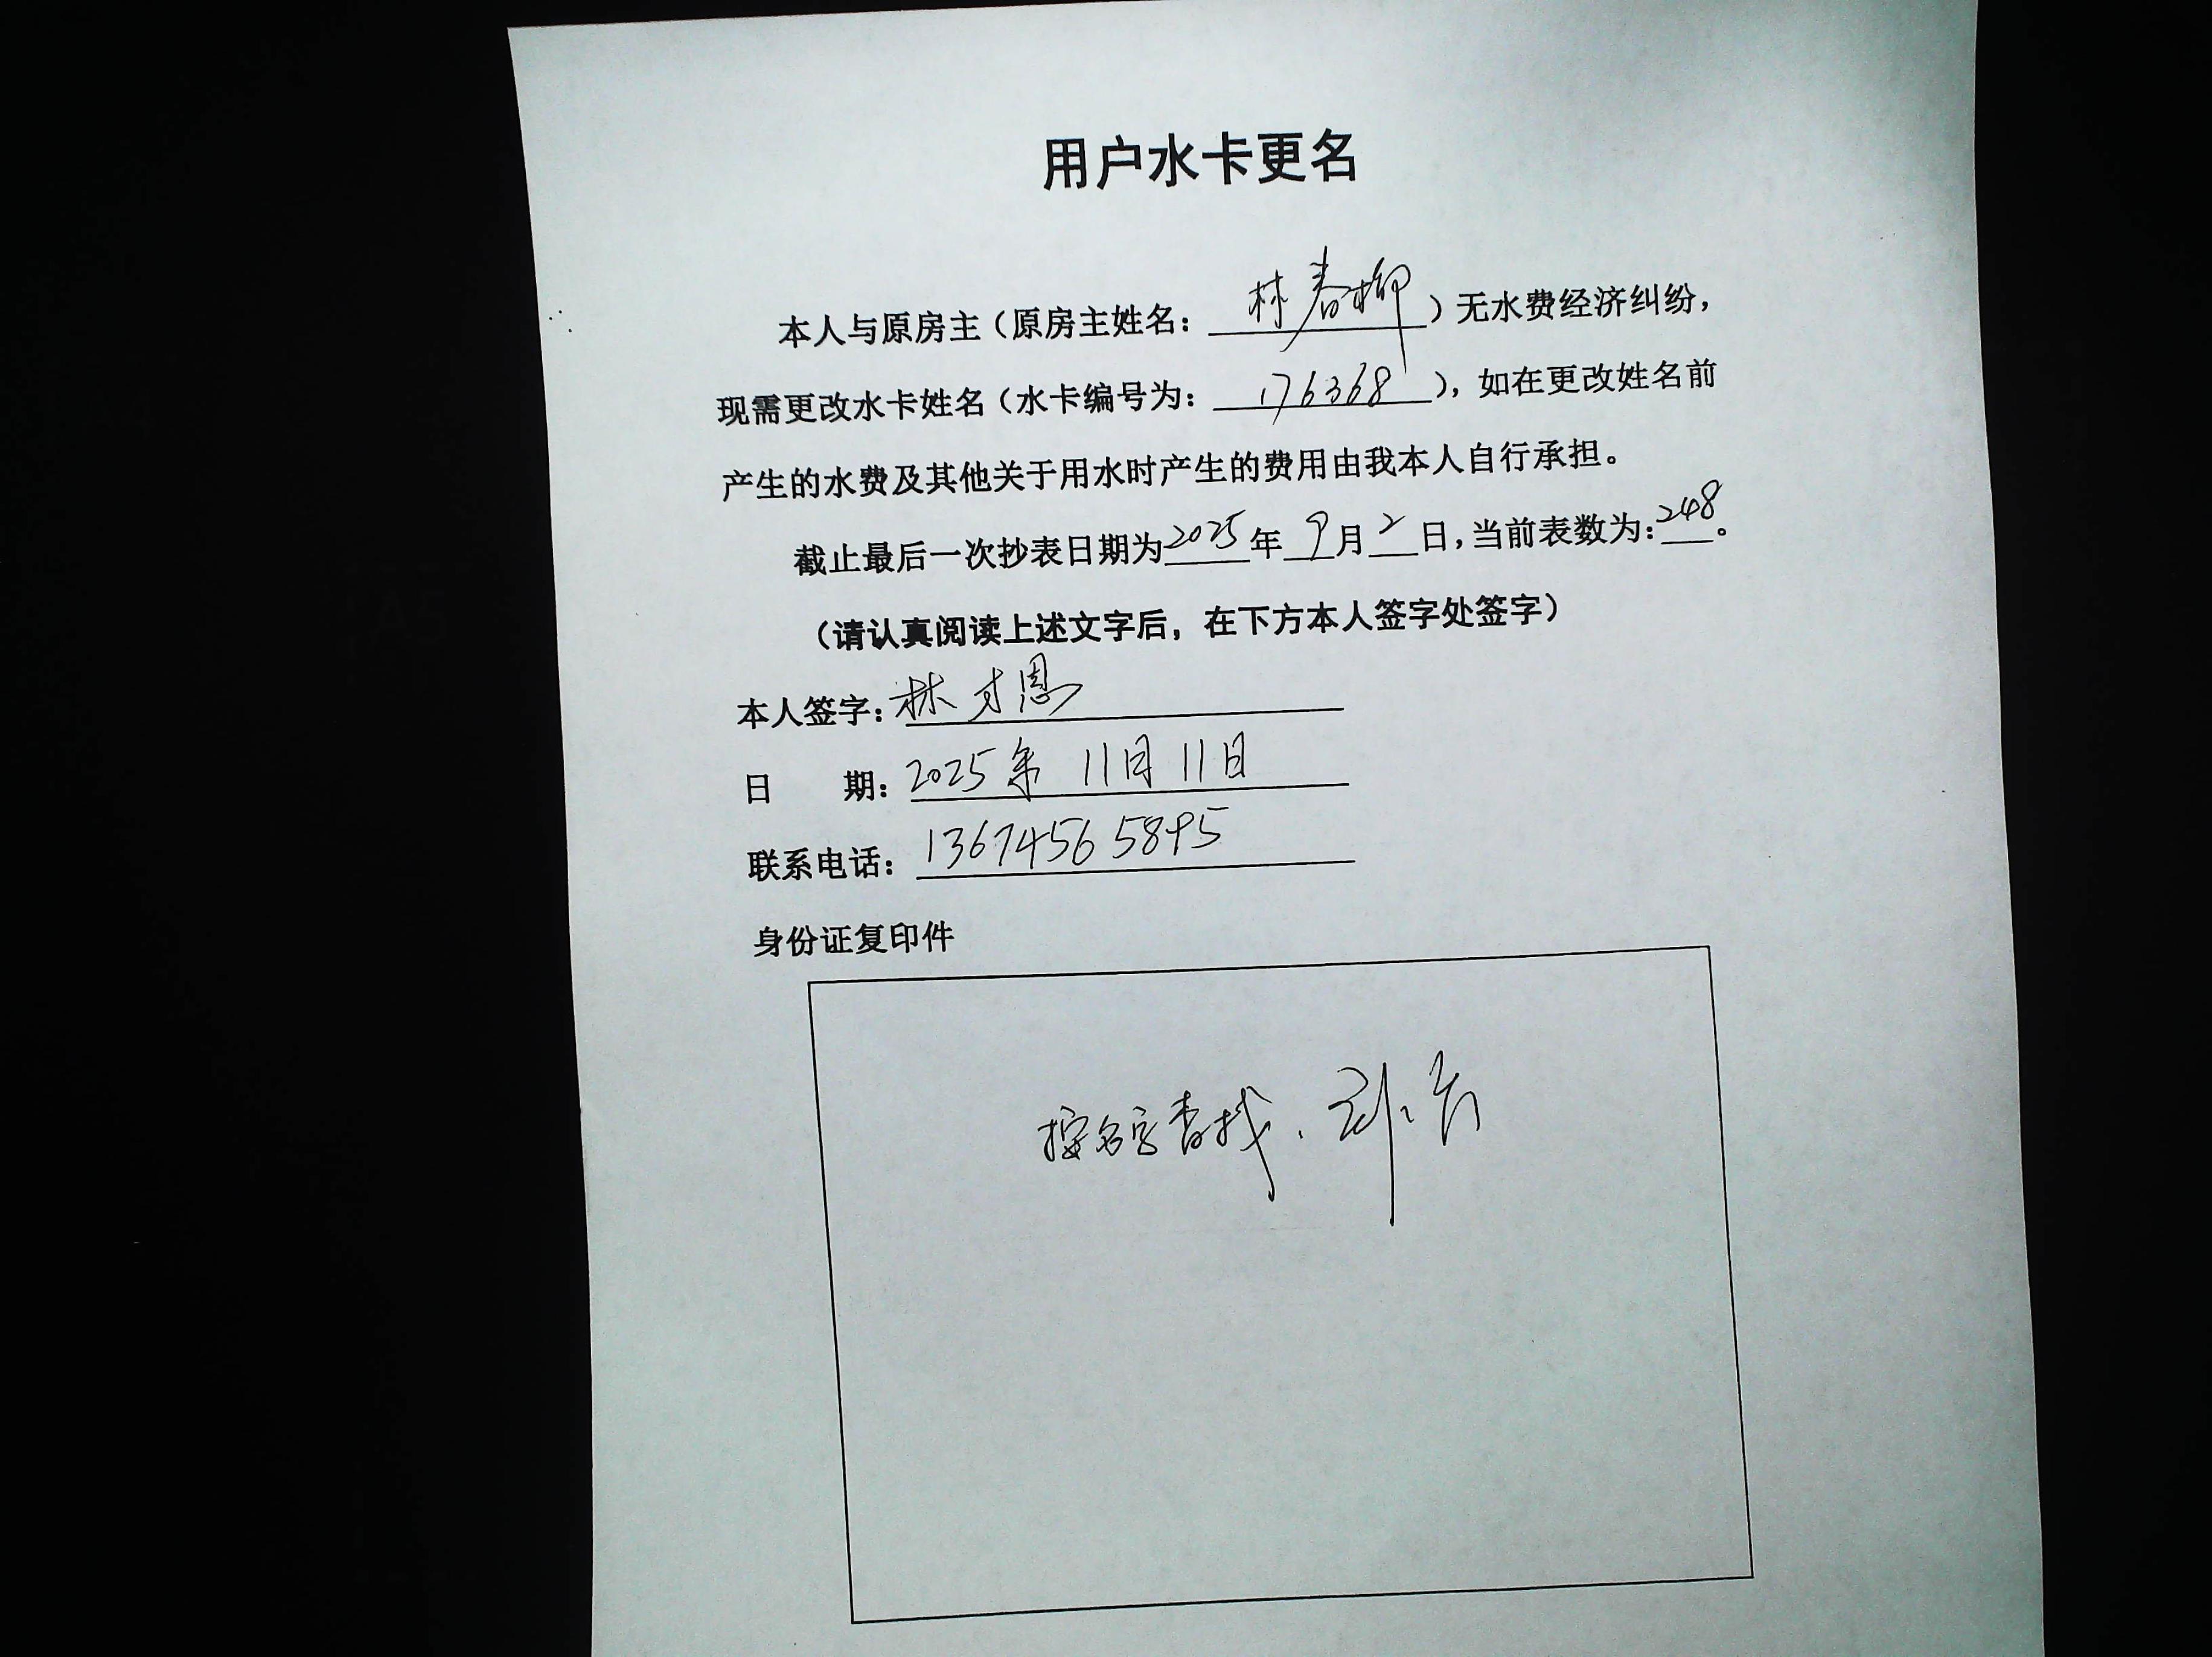 用户水卡更名
本人与原房主（原房主姓名：林春柳）无水费经济纠纷，
现需更改水卡姓名（水卡编号为：176368），如在更改姓名前
产生的水费及其他关于用水时产生的费用由我本人自行承担。
截止最后一次抄表日期为2025年9月2日，当前表数为：248。
（请认真阅读上述文字后，在下方本人签字处签字）
本人签字：林才恩
日 期：2025年 11月11日
联系电话：13674565895
身份证复印件
按名字查找.